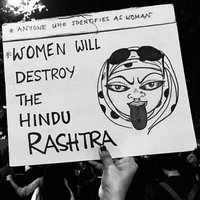 * ANYONE WHO IDENTIFIES AS WOMAN
*WOMEN WILL
DESTROY
THE
HINDU
RASHTRA